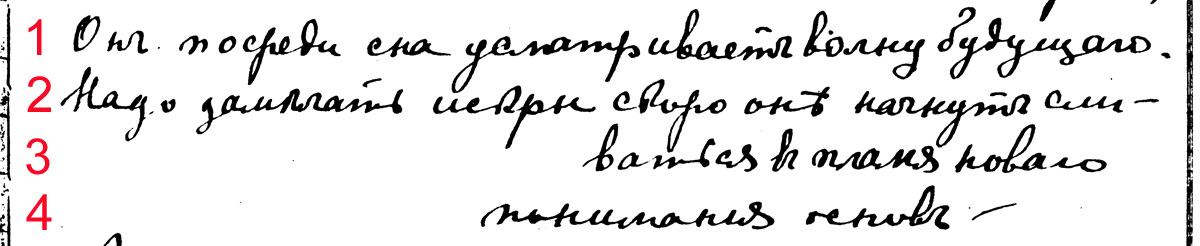 1 Онъ посреди сна усматриваетъ волну будущаго.
2 Надо замѣчать искры скоро онѣ начнутъ сли-
3 ваться въ пламя новаго
4 пониманія основъ —